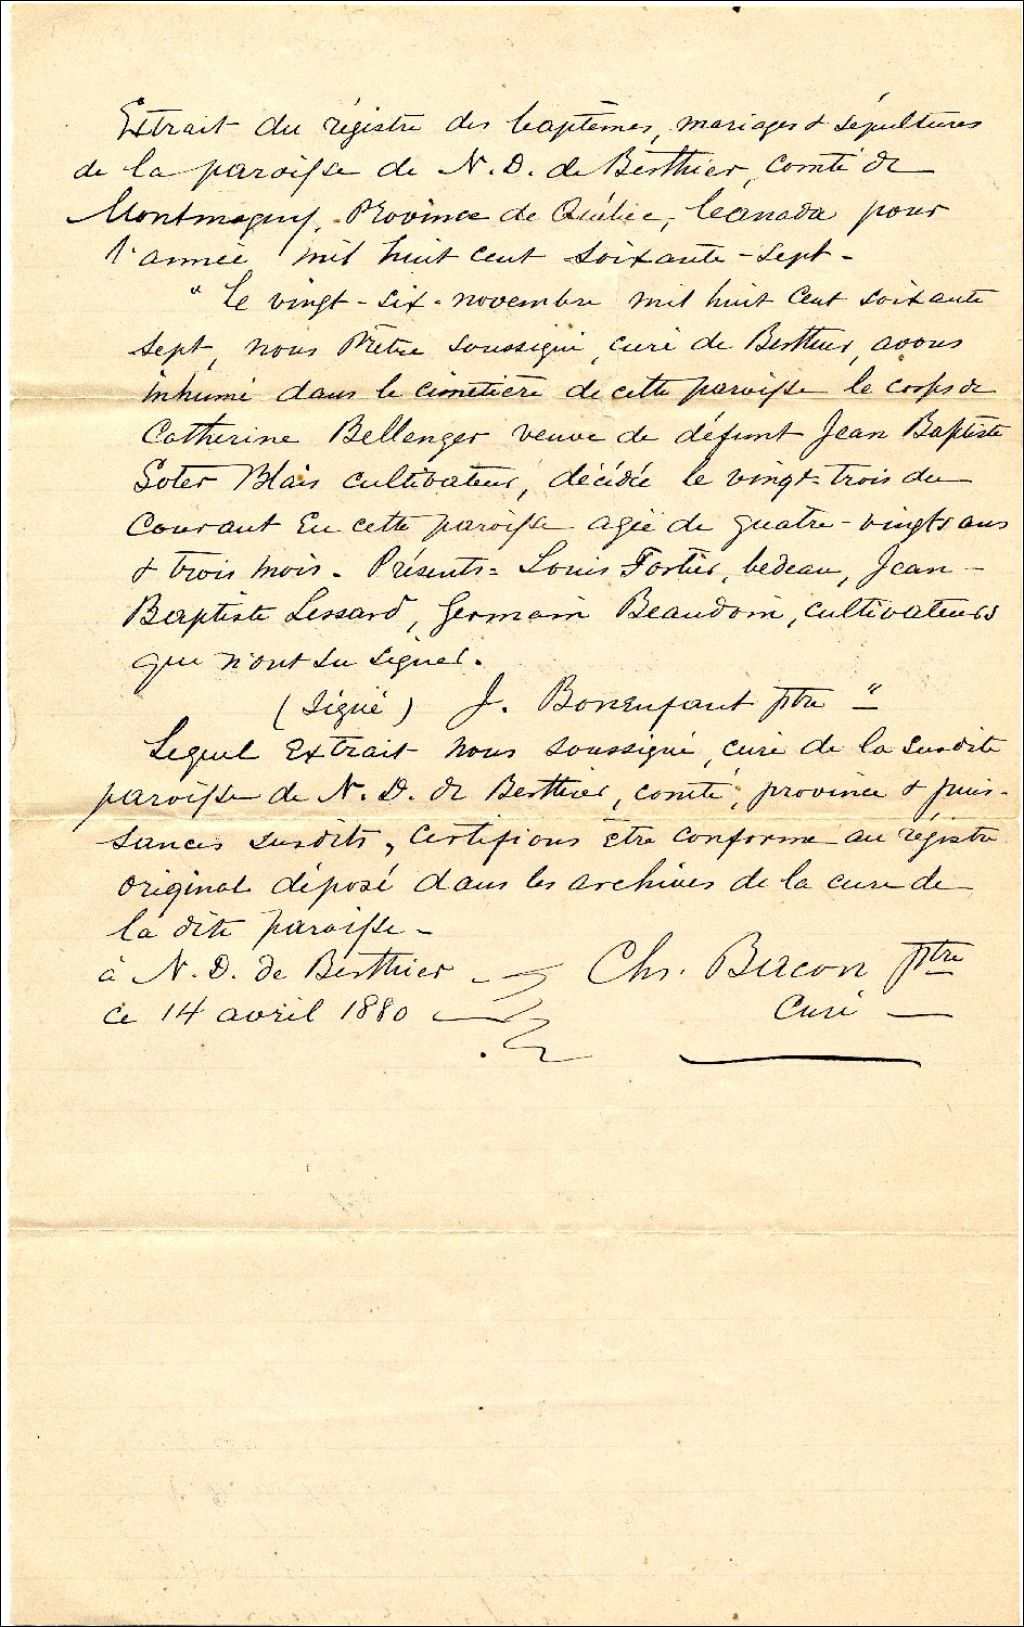 Extrait du régistre des baptêmes, mariages & sépultures
de la paroisse de N. D. de Berthier, comté de
Montmagny, Province de Québec, Canada pour
l'année mil huit cent soixante-sept-
" Le vingt-six-novembre mil huit cent soixante
sept, nous Prêtre soussigné, curé de Berthier, avons
inhumé dans le cimetière de cette paroisse le corps de
Catherine Bellenger veuve de défunt Jean Baptiste
Soter Blais cultivateur, décédée le vingt-trois du
courant en cette paroisse agée de quatre-vingts ans
& trois mois. Présents= Louis Fortier, bedeau, Jean-
Baptiste Lessard, Germain Beaudoin, cultivateurs
qui n'ont su signer.
(signé) J. Bonenfant Ptre "
Lequel Extrait nous soussigné, curé de la susdite
paroisse de N. D. de Berthier, comté, province & puis-
sances susdits, certifions être conforme au régistre
original déposé dans les archives de la cure de
la dite paroisse-
à N. D. de Berthier
ce 14 avril 1880
Chs. Bacon Ptre
Curé